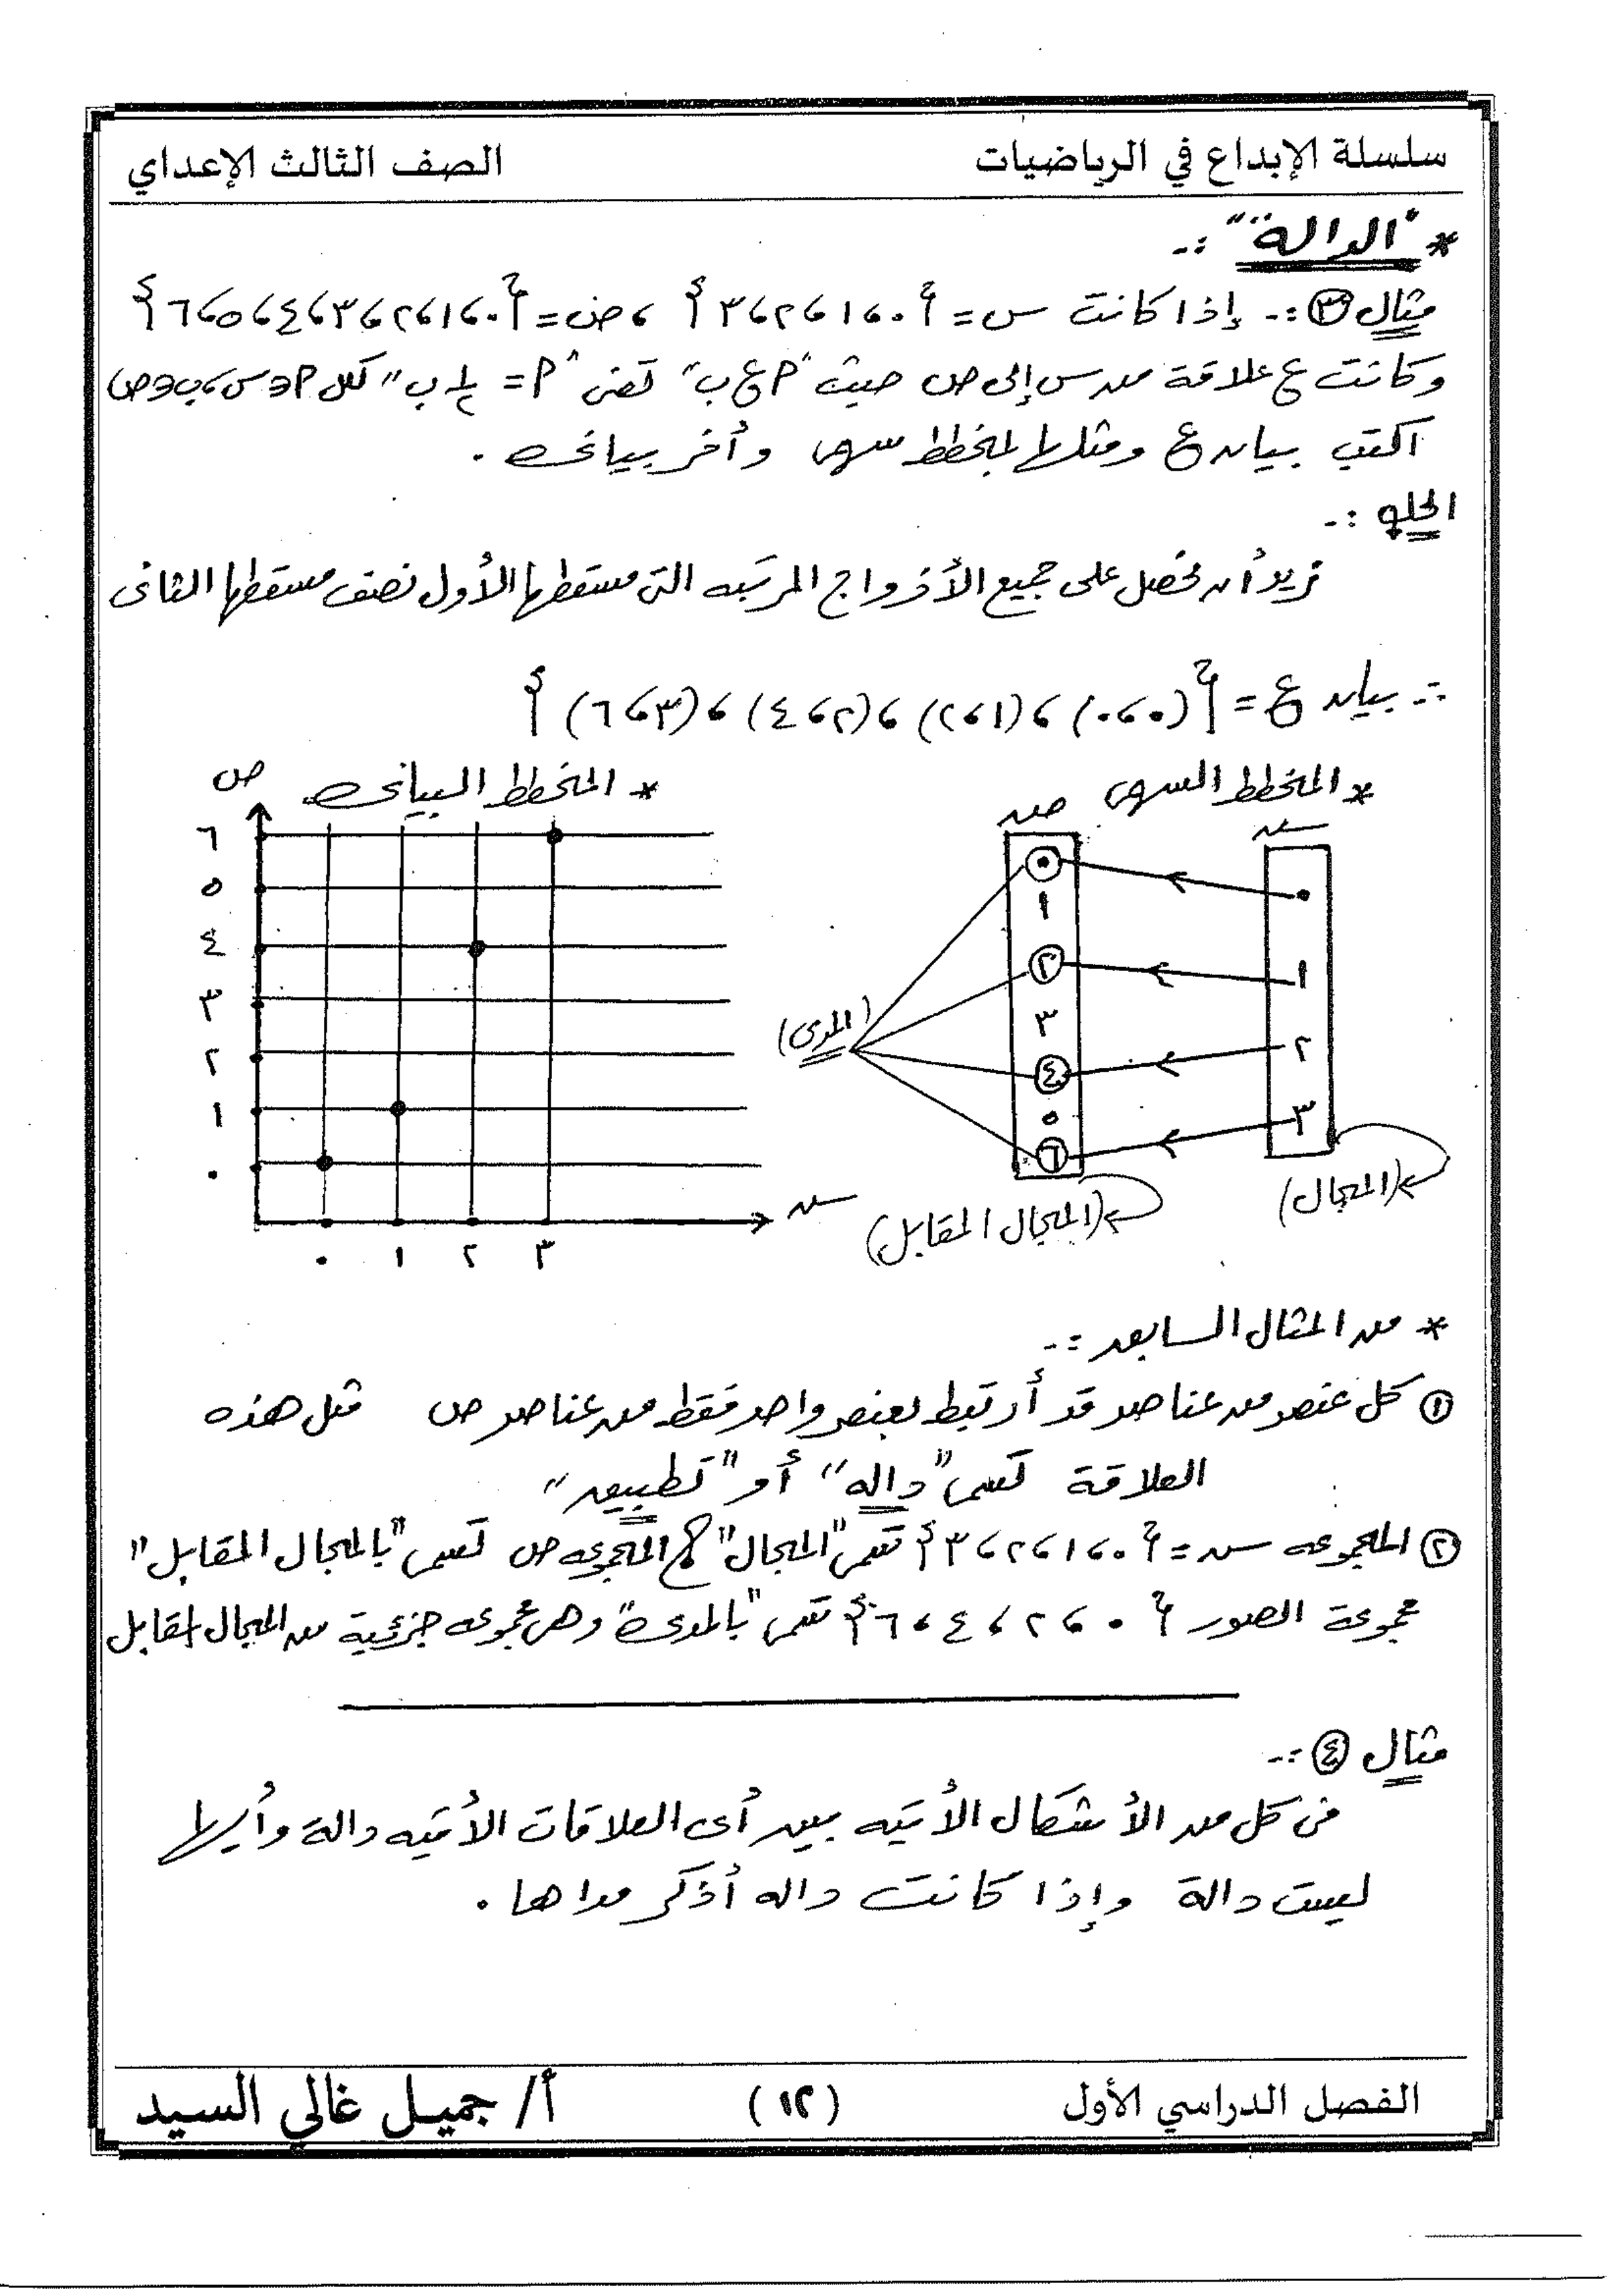 سلسلة الإبداع في الرياضيات
الصف الثالث الإعداي
* "الدالة" :-
مثال ٣ :- إذا كانت س = {٠ ، ١ ، ٢ ، ٣} ، ص = {٠ ، ١ ، ٢ ، ٣ ، ٤ ، ٥ ، ٦}
وكانت ع علاقة من س إلى ص حيث "أ ع ب" تعنى "أ = ١/٢ ب" لكل أ ∈ س ، ب ∈ ص
اكتب بيان ع ومثلها بمخطط سهمى وأخر بيانى .
الحل :-
نريد أن نحصل على جميع الأزواج المرتبه التى مسقطها الأول نصف مسقطها الثانى
∴ بيان ع = {(٠ ، ٠) ، (١ ، ٢) ، (٢ ، ٤) ، (٣ ، ٦)}
* المخطط السهمى
سـ
صـ
٠
١
٢
٣
٠
١
٢
٣
٤
٥
٦
(المدى)
(المجال)
(المجال المقابل)
* المخطط البيانى
ص
٦
٥
٤
٣
٢
١
٠
٠ ١ ٢ ٣
سـ
* من المثال السابق :-
١ كل عنصر من عناصر قد أرتبط بعنصر واحد فقط من عناصر ص مثل هذه
العلاقة تسمى "داله" أو "تطبيق"
٢ المجموعه سـ = {٠ ، ١ ، ٢ ، ٣} تسمى "المجال" المجموعه ص تسمى "بالمجال المقابل"
مجموعة الصور {٠ ، ٢ ، ٤ ، ٦} تسمى "بالمدى" وهى مجموعه جزئية من المجال المقابل
مثال ٤ :-
فى كل من الأشكال الأتيه بين أى العلاقات الأتيه دالة وأيها
ليست دالة وإذا كانت داله أذكر مداها .
الفصل الدراسي الأول
(١٢)
أ/ جميل غالي السيد